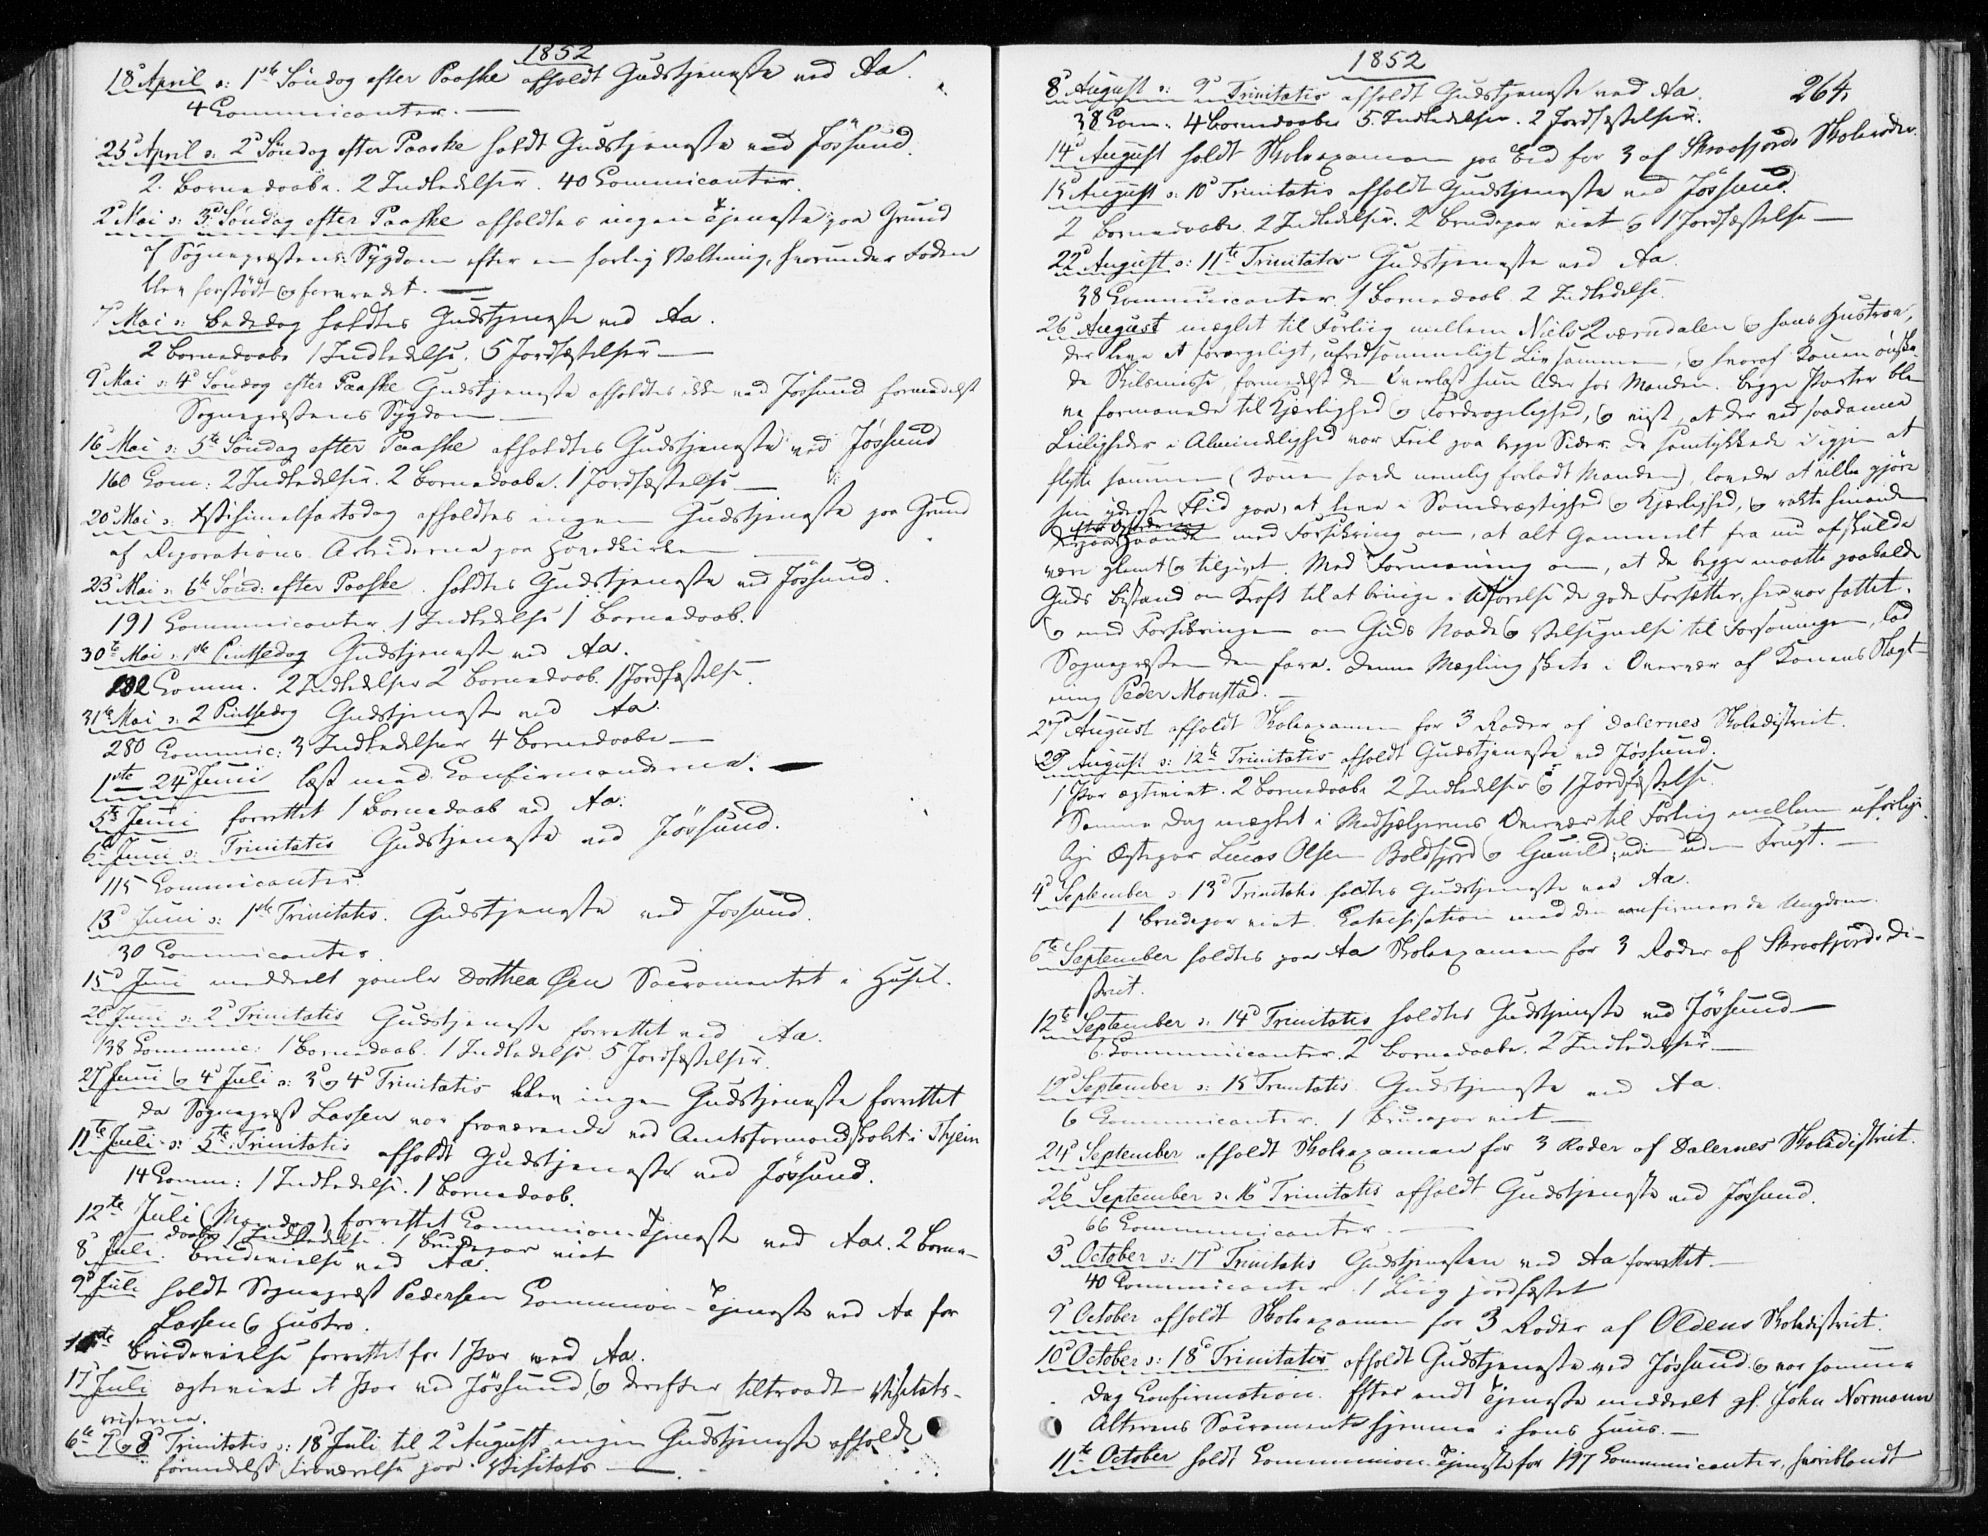 1852
18de April ɔ: 1ste Söndag efter Paaske afholdt Gudstjeneste ved Aa.
4 Communicanter. —
25de April ɔ: 2d Söndag efter Paaske holdt Gudstjeneste ved Jössund.
2 Barnedaabe. 2 Indledelser. 40 Communicanter.
2d Mai ɔ: 3d Söndag efter Paaske afholdtes ingen Tjeneste paa Grund
af Sognepræstens Sÿgdom efter en farlig Veltning, hvorunder Foden
blev forstödt og forvredet. —
7d Mai ɔ: Bededag holdtes Gudstjeneste ved Aa.
2 Barnedaabe 1 Indledelse. 5 Jordfæstelser —
9d Mai ɔ: 4d Söndag efter Paaske Gudstjeneste afholdtes ikke ved Jössund formedelst
Sognepræstens Sÿgdom —
16d Mai ɔ: 5te Söndag efter Paaske afholdtes Gudstjeneste ved Jössund
160 Com: 2 Indledelser. 2 Barnedaabe. 1 Jordfæstelse —
20d Mai ɔ: Christihimmelfartsdag afholdtes ingen Gudstjeneste paa Grund
af Reparations Arbeiderne paa Hovedkirken —
23d Mai ɔ: 6te Sönd: efter Paaske holdtes Gudstjeneste ved Jössund.
191 Communicanter. 1 Indledelse 1 Barnedaab.
30te Mai ɔ: 1ste Pintsedag Gudstjeneste ved Aa.
Comm. 2 Indledelser 2 Barnedaab. 1 Jordfæstelse.
31te Mai ɔ: 2 Pintsedag Gudstjeneste ved Aa.
280 Communic: 3 Indledelser 4 Barnedaabe —
1ste — 24d Juni læst med Confirmanderne. —
5te Juni forrettet 1 Barnedaab ved Aa.
6te Juni ɔ: Trinitatis Gudstjeneste ved Jössund.
115 Communicanter.
13d Juni ɔ: 1ste Trinitatis. Gudstjeneste ved Jossund.
30 Communicanter.
15d Juni meddeelt gamle Dorthea Öen Sacramentet i Huset.
20d Juni ɔ: 2d Trinitatis Gudstjeneste forrettet ved Aa.
138 Communic: 1 Barnedaab. 1 Indledelse 5 Jordfæstelser.
27d Juni og 4d Juli ɔ: 3d og 4d Trinitatis blev ingen Gudstjeneste forrettet
da Sognepræst Lassen var fraværende ved Amtsformandskabet i Thjem
11te Juli ɔ: 5te Trinitatis afholdt Gudstjeneste ved Jössund.
14 Comm: 1 Indledelse. 1 Barnedaab.
12te Juli (Mandag) forrettet Communion-Tjeneste ved Aa. 2 Barne-
daabe 1 Indledelse. 1 Brudepar viet
8d Juli. Brudevielse ved Aa.
9d Juli holdt Sognepræst Pedersen Communion-Tjeneste ved Aa for
Lassen og Hustro.
Brudevielse forrettet for 1 Par ved Aa.
17d Juli ægteviet et Par ved Jössund, og derefter tiltraadt Visitats-
reiserne.
6te 7 og 8d Trinitatis ɔ: 18d Juli til 2d August ingen Gudstjeneste afholdt
formedelst Fraværelse paa Visitats —
1852
264.
8d August ɔ: 9d Trinitatis afholdt Gudstjeneste ved Aa.
38 Com. 4 Barnedaabe 5 Indledelser. 2 Jordfæstelser.
14d August holdt Skoleexamen paa Eid for 3 af Skraafjords Skoleroder.
15d August ɔ: 10d Trinitatis afholdt Gudstjeneste ved Jössund.
2 Barnedaabe. 2 Indledelser. 2 Brudepar viet og 1 Jordfæstelse —
22d August ɔ: 11te Trinitatis Gudstjeneste ved Aa.
38 Communicanter. 1 Barnedaab. 2 Indledelse.
26d August mæglet til Forliig mellem Niels Qværndalen og hans Hustroe,
der leve et forargeligt, ufredsommeligt Liv sammen, og hvoraf Konen önske-
de Skilsmisse, formedelst den Overlast hun lider hos Manden. Begge Parter ble-
ve formanede til Kjærlighed og Fordragelighed, og viist, at der ved saadanne
Leiligheder i Almindelighed var Feil paa begge Sider. De samtÿkkede i igjen at
flytte sammen (Konen havde nemlig forladt Manden), lovede at ville gjöre
sin yderste Flid paa, at leve i Samdrægtighed og Kjærlighed, og rakte hinanden
Haanden med Forsikring om, at alt Gammelt fra nu af skulde
være glemt og tilgivet. Med Formaning om, at de begge maatte paakalde
Guds Bistand om Kraft til at bringe i Udförelse de gode Forsætter, her var fattet.
og med Forsikringen om Guds Naade og Velsignelse til Forsoningen, lod
Sognepræsten dem fare. Denne Mægling skete i Overvær af Konens Slægt-
ning Peder Monstad. —
27d August afholdt Skoleexamen for 3 Roder af Dalernes Skoledistrict.
29d August ɔ: 12te Trinitatis afholdt Gudstjeneste ved Jössund.
1 Par ægteviet. 2 Barnedaabe 2 Indledelser og 1 Jordfæstelse.
Samme Dag mæglet i Medhjelpernes Overvær til Forlig mellem uforlige-
lige Ægtepar Lucas Olsen Boldfjord og Gunild; uden Frugt. —
4d September ɔ: 13d Trinitatis holdtes Gudstjeneste ved Aa.
1 Brudepar viet. Catechisation med den confirmerede Ungdom.
6te September holdtes paa Aa Skoleexamen for 3 Roder af Skraafjords Di-
strict.
12te September ɔ: 14d Trinitatis holdtes Gudstjeneste ved Jössund —
6 Communicanter. 2 Barnedaabe. 2 Indledelser —
19d September ɔ: 15d Trinitatis. Gudstjeneste ved Aa.
6 Communicanter. 1 Brudepar viet —
24d September afholdt Skoleexamen for 3 Roder af Dalernes Skoledistrict.
26d September ɔ: 16d Trinitatis afholdt Gudstjeneste ved Jössund.
66 Communicanter. —
3d October ɔ: 17d Trinitatis Gudstjenesten ved Aa forrettet. —
40 Communicanter. 1 Liig jordfæstet
9d October afholdt Skoleexamen for 3 Roder af Oldens Skoledistrict.
10d October ɔ: 18d Trinitatis afholdt Gudstjeneste ved Jössund og var samme
Dag Confirmation. Efter endt Tjeneste meddeelt gl. John Normann
Alterens Sacramente hjemme i hans Huus. —
11te October holdt Communion-Tjeneste for 197 Communicanter, hvoriblandt